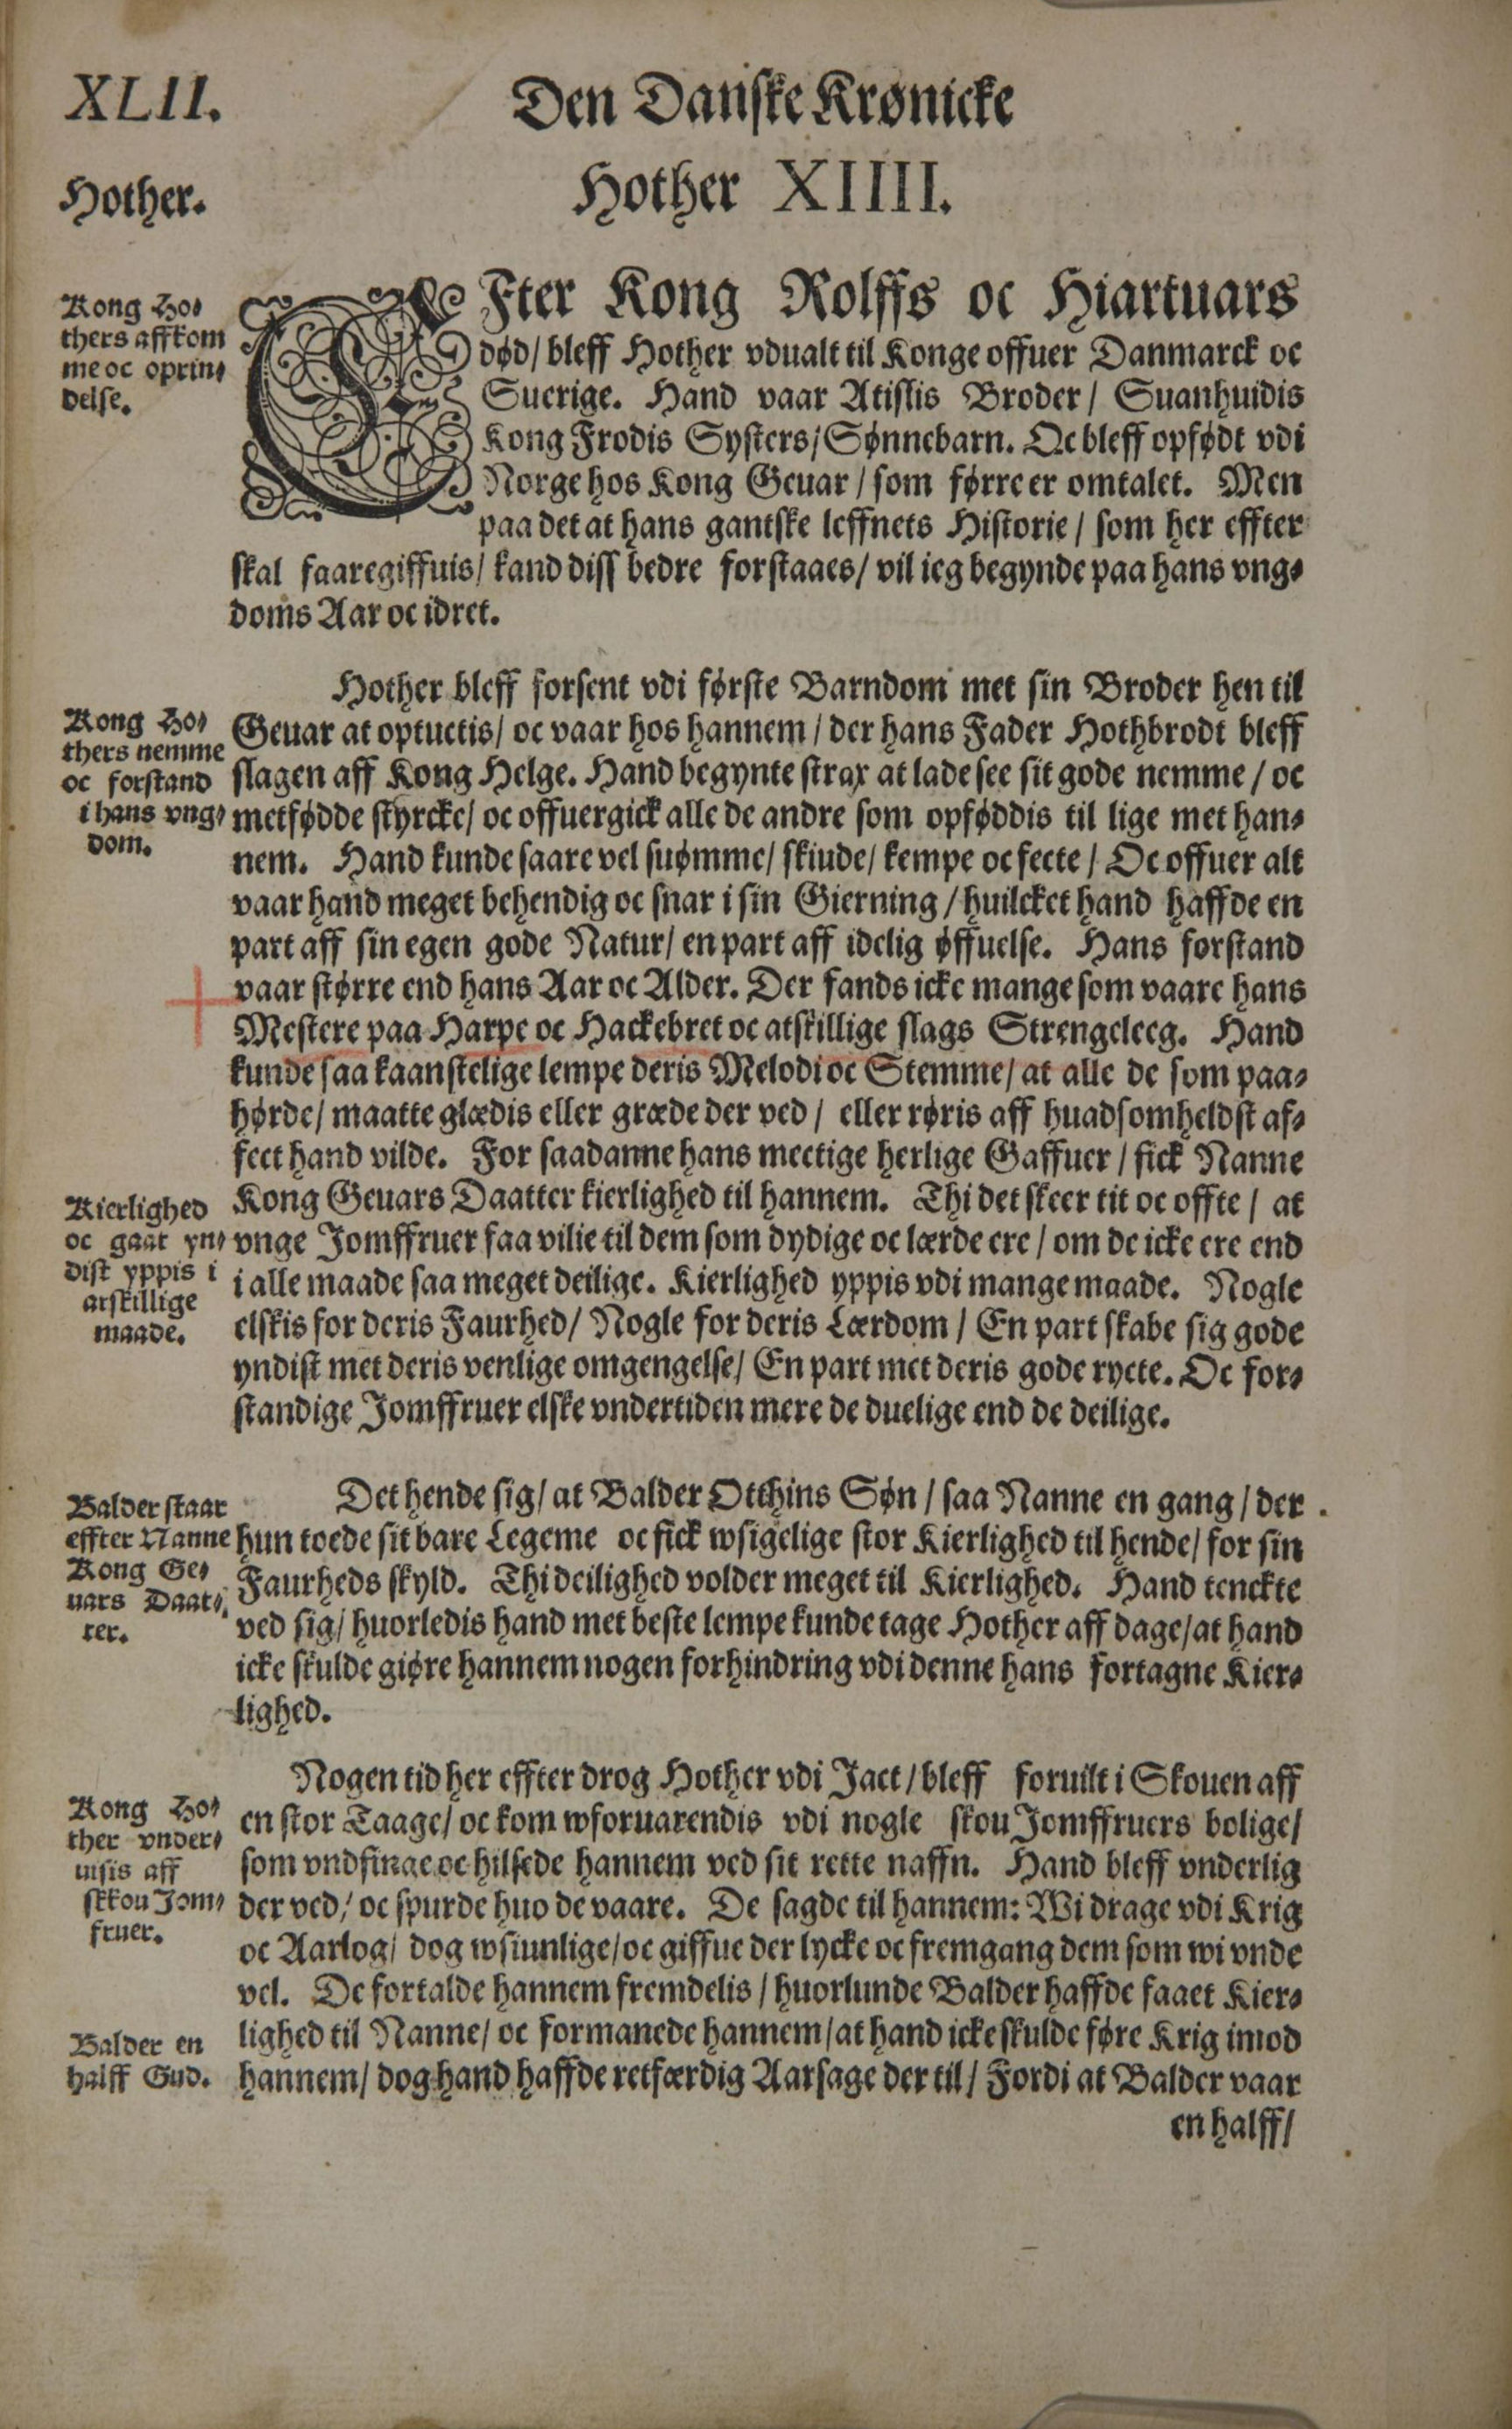 XLII.
Den Danske Krønicke
Hother.
Hother XIIII.
Kong Ho-
thers affkom
me oc oprin-
delse.
EFter Kong Rolffs oc Hiartuars
død/ bleff Hother vdualt til Konge offuer Danmarck oc
Suerige. Hand vaar Atislis Broder/ Suanhuidis
Kong Frodis Systers/ Sønnebarn. Oc bleff opfødt vdi
Norge hos Kong Geuar/ som førre er omtalet. Men
paa det at hans gantske leffnets Historie/ som her effter
skal faaregiffuis/ kand diss bedre forstaaes/ vil ieg begynde paa hans vng-
doms Aar oc idret.
Kong Ho-
thers nemme
oc forstand
i hans vng-
dom.
Hother bleff forsent vdi første Barndom met sin Broder hen til
Geuar at optuctis/ oc vaar hos hannem/ der hans Fader Hothbrodt bleff
slagen aff Kong Helge. Hand begynte strax at lade see sit gode nemme/ oc
metfødde styrcke/ oc offuergick alle de andre som opføddis til lige met han-
nem. Hand kunde saare vel suømme/ skiude/ kempe oc fecte/ Oc offuer alt
vaar hand meget behendig oc snar i sin Gierning/ huilcket hand haffde en
part aff sin egen gode Natur/ en part aff idelig øffuelse. Hans forstand
vaar større end hans Aar oc Alder. Der fands icke mange som vaare hans
Mestere paa Harpe oc Hackebret oc atskillige slags Strengeleeg. Hand
kunde saa kaanstelige lempe deris Melodi oc Stemme/ at alle de som paa-
hørde/ maatte glædis eller græde der ved/ eller røris aff huadsomheldst af-
fect hand vilde. For saadanne hans mectige herlige Gaffuer/ fick Nanne
Kong Geuars Daatter kierlighed til hannem. Thi det skeer tit oc offte/ at
vnge Jomffruer faa vilie til dem som dydige oc lærde ere/ om de icke ere end
i alle maade saa meget deilige. Kierlighed yppis vdi mange maade. Nogle
elskis for deris Faurhed/ Nogle for deris Lærdom/ En part skabe sig gode
yndist met deris venlige omgengelse/ En part met deris gode rycte. Oc for-
standige Jomffruer elske vndertiden mere de duelige end de deilige.
Kierlighed
oc gaat yn-
dist yppis i
atskillige
maade.
Balder staar
effter Nanne
Kong Ge-
uars Daat-
ter.
Det hende sig/ at Balder Otthins Søn/ saa Nanne en gang/ der
hun toede sit bare Legeme oc fick wsigelige stor Kierlighed til hende/ for sin
Faurheds skyld. Thi deilighed volder meget til Kierlighed. Hand tenckte
ved sig/ huorledis hand met beste lempe kunde tage Hother aff dage/ at hand
icke skulde giøre hannem nogen forhindring vdi denne hans fortagne Kier-
lighed.
Kong Ho-
ther vnder-
uisis aff
skkou Jom-
fruer.
Nogen tid her effter drog Hother vdi Jact/ bleff foruilt i Skouen aff
en stor Taage/ oc kom wforuarendis vdi nogle skou Jomffruers bolige/
som vndfinge oc hilsede hannem ved sit rette naffn. Hand bleff vnderlig
der ved/ oc spurde huo de vaare. De sagde til hannem: Wi drage vdi Krig
oc Aarlog/ dog wsiunlige/ oc giffue der lycke oc fremgang dem som wi vnde
vel. De fortalde hannem fremdelis/ huorlunde Balder haffde faaet Kier-
lighed til Nanne/ oc formanede hannem/ at hand icke skulde føre Krig imod
hannem/ dog hand haffde retfærdig Aarsage der til/ Fordi at Balder vaar
Balder en
halff Gud.
en halff/